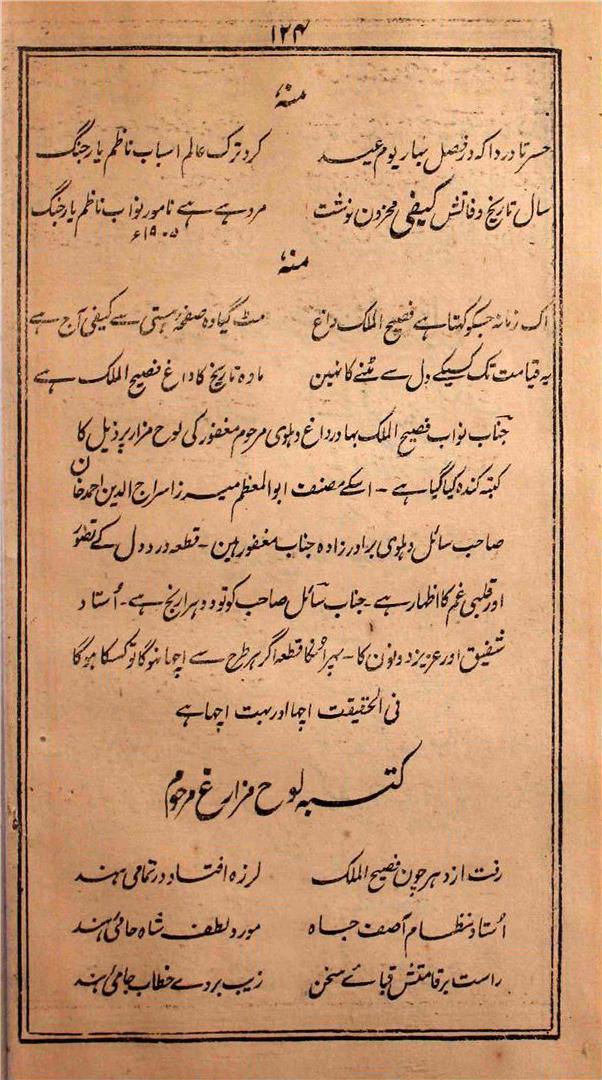 ۱۲۴
منہٗ
حسرتا دردا کہ در فصل بہار یوم عید کرد ترک عالم اسباب ناظم یار جنگ
سال تاریخ وفاتش کیفی محزون نوشت مرد ہے ہے نامور نواب ناظم یار جنگ
۱۹۰۵ء
منہٗ
اک زمانہ جسکو کہتا ہے فصیح الملک داغ مٹ گیا وہ صفحۂ ہستی سے کیفی آج ہے
یہ قیامت تک کسیکے دل سے مٹنے کا نہین مادہ تاریخ کا داغ فصیح الملک ہے
جناب نواب فصیح الملک بہادر داغ دہلوی مرحوم مغفور کی لوح مزار پر ذیل کا
کتبہ کندہ کیا گیا ہے - اسکے مصنف ابوالمعظم میرزا سراج الدین احمد خان
صاحب سائل دہلوی برادر زادہ جناب مغفور ہین - قطعہ درد دل کے تصور
اور قلبی غم کا اظہار ہے - جناب سائل صاحب کو تو دوہرا رنج ہے - اُستاد
شفیق اور عزیز دونون کا - پہر انکا قطعہ اگر ہر طرح سے اچہا نہوگا تو کسکا ہوگا
فی الحقیقت اچہا اور بہت اچہا ہے
کتبہ لوح مزار داغ مرحوم
رفت از دہر چون فصیح الملک لرزہ افتاد در تمامی ہند
اُستاد نظام آصف جاہ مورد لطف شاہ حامی ہند
راست بر قامتش قبائے سخن زیب بر دے خطاب جامی ہند